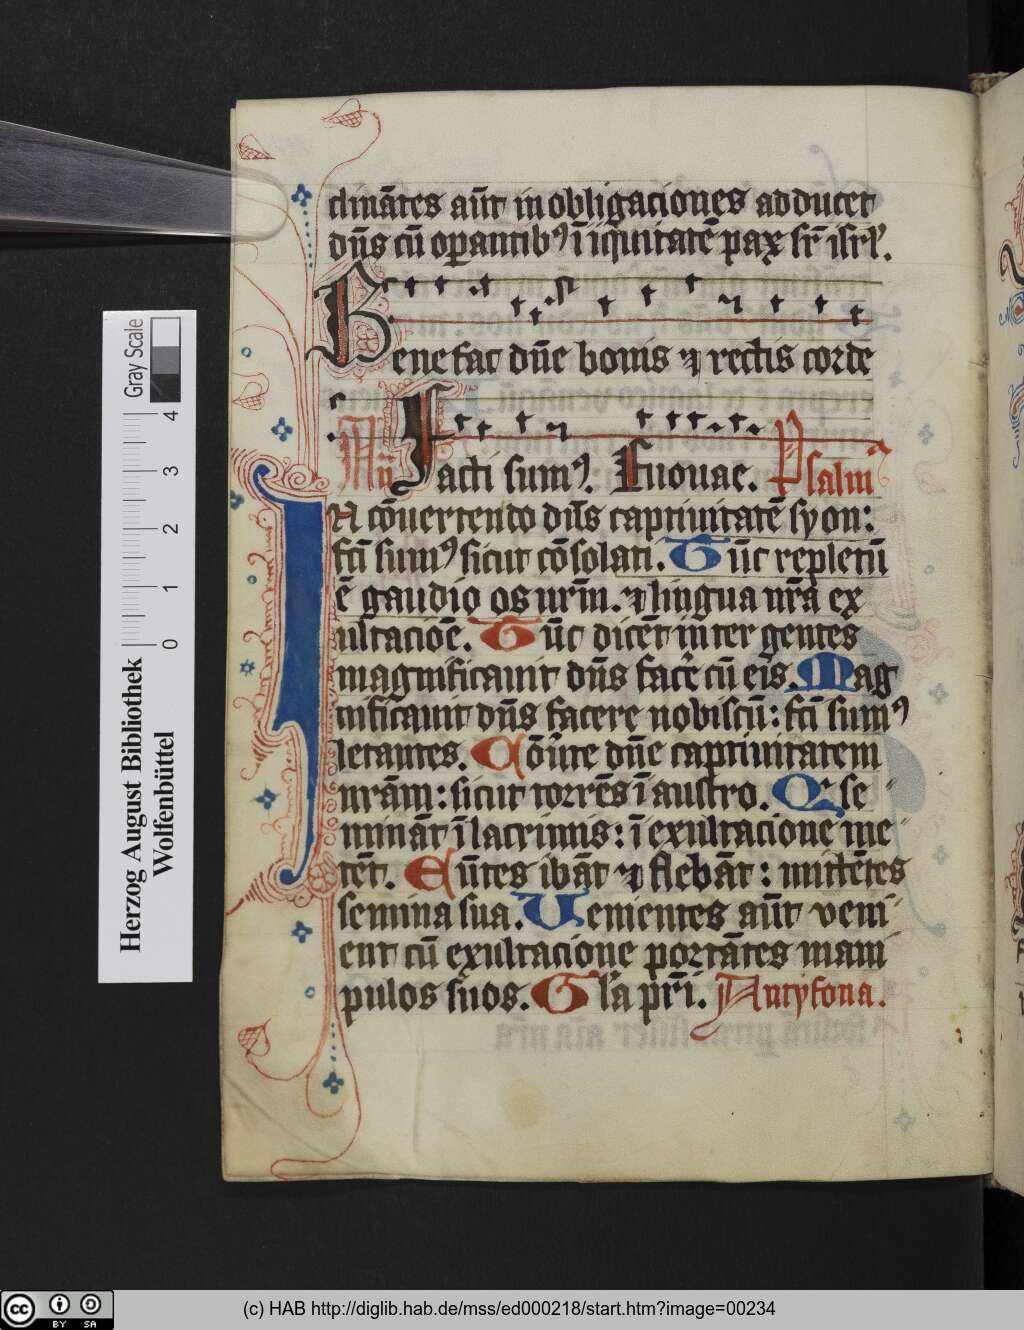 clinātes aūt in obligaciones adducet
dn̄s cū oꝑantibꝰ ī iq̇uitatē pax sr̄ isrl̓.
Benefac dn̄e bonis ⁊ rectis corde
An̄ Facti sumꝰ. Euouae. Psalmꝰ
In cōuertendo dn̄s captiuitatē syon:
fcī sumꝰ sicut cōsolati. Tūc repletū
ē gaudio os nrm̄. ⁊ lingua nrā ex
ultacioē. Tūc dicēt inter gentes
magnificauit dn̄s facr̄e cū eis. Mag
nificauit dn̄s facere nobiscū: fcī sumꝰ
letantes. Cōu̓te dn̄e captiuitatem
nrām: sicut torrēs ī austro. Qi se-
mināt ī lacrimis: ī exultacione me-
tēt. Eūtes ibāt ⁊ flebāt: mittētes
semina sua. Uenientes aūt veni-
ent cū exultacione portātes mani
pulos suos. Gl̓a pr̄i. Antyfona.
Gray Scale
4
3
2
1
0
Herzog August Bibliothek
Wolfenbüttel
cc BY SA
(c) HAB http://diglib.hab.de/mss/ed000218/start.htm?image=00234